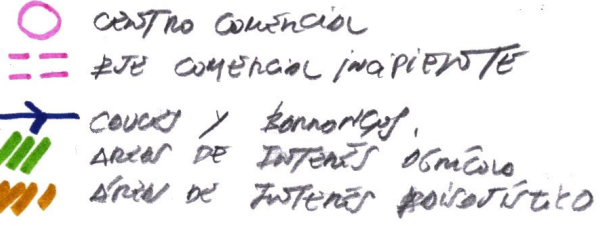 CENTRO COMERCIAL
EJE COMERCIAL INCIPIENTE
CAUCES Y BARRANCOS.
AREAS DE INTERÉS AGRÍCOLA
ÁREAS DE INTERÉS PAISAJÍSTICO